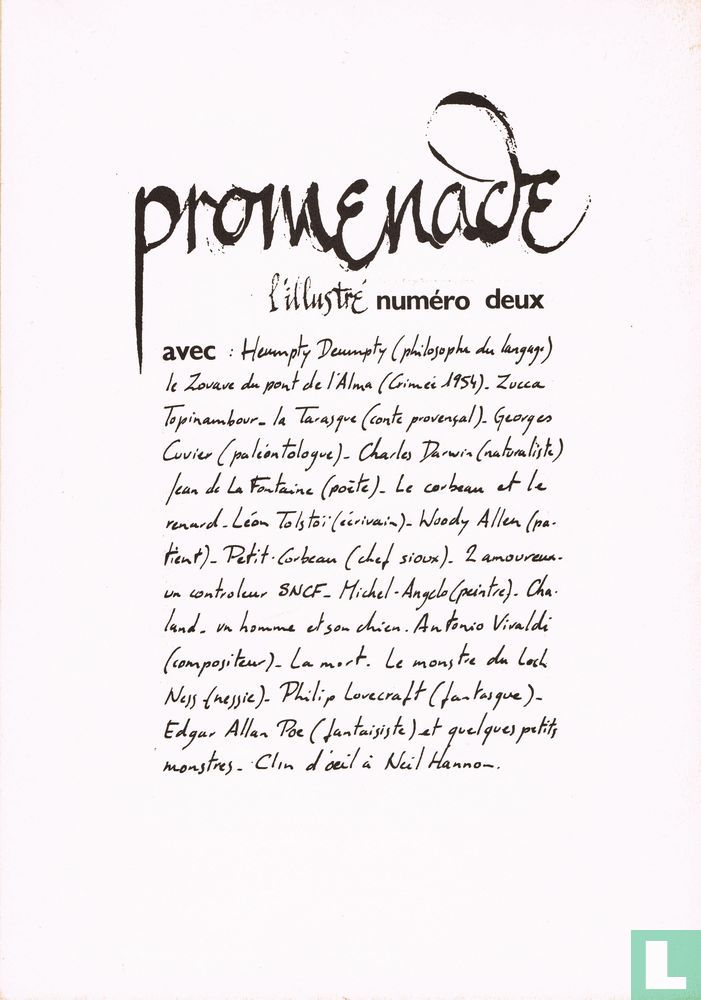 promenade
l'illustré numéro deux
avec : Heumpty Deumpty (philosophe du langage)
le Zouave du pont de l'Alma (Crimée 1954)_ Zucca
Topinambour_ la Tarasque (conte provençal)_ Georges
Cuvier (paléontologue)_ Charles Darwin (naturaliste)
Jean de La Fontaine (poète)_ Le corbeau et le
renard_ Léon Tolstoï (écrivain)_ Woody Allen (pa-
tient)_ Petit-Corbeau (chef sioux)_ 2 amoureux_
un controleur SNCF_ Michel-Angelo (peintre)_ Cha-
land_ un homme et son chien. Antonio Vivaldi
(compositeur)_ La mort. Le monstre du Loch
Ness (nessie)_ Philip Lovecraft (fantasque)_
Edgar Allan Poe (fantaisiste) et quelques petits
monstres_ Clin d'oeil à Neil Hannon_.
L